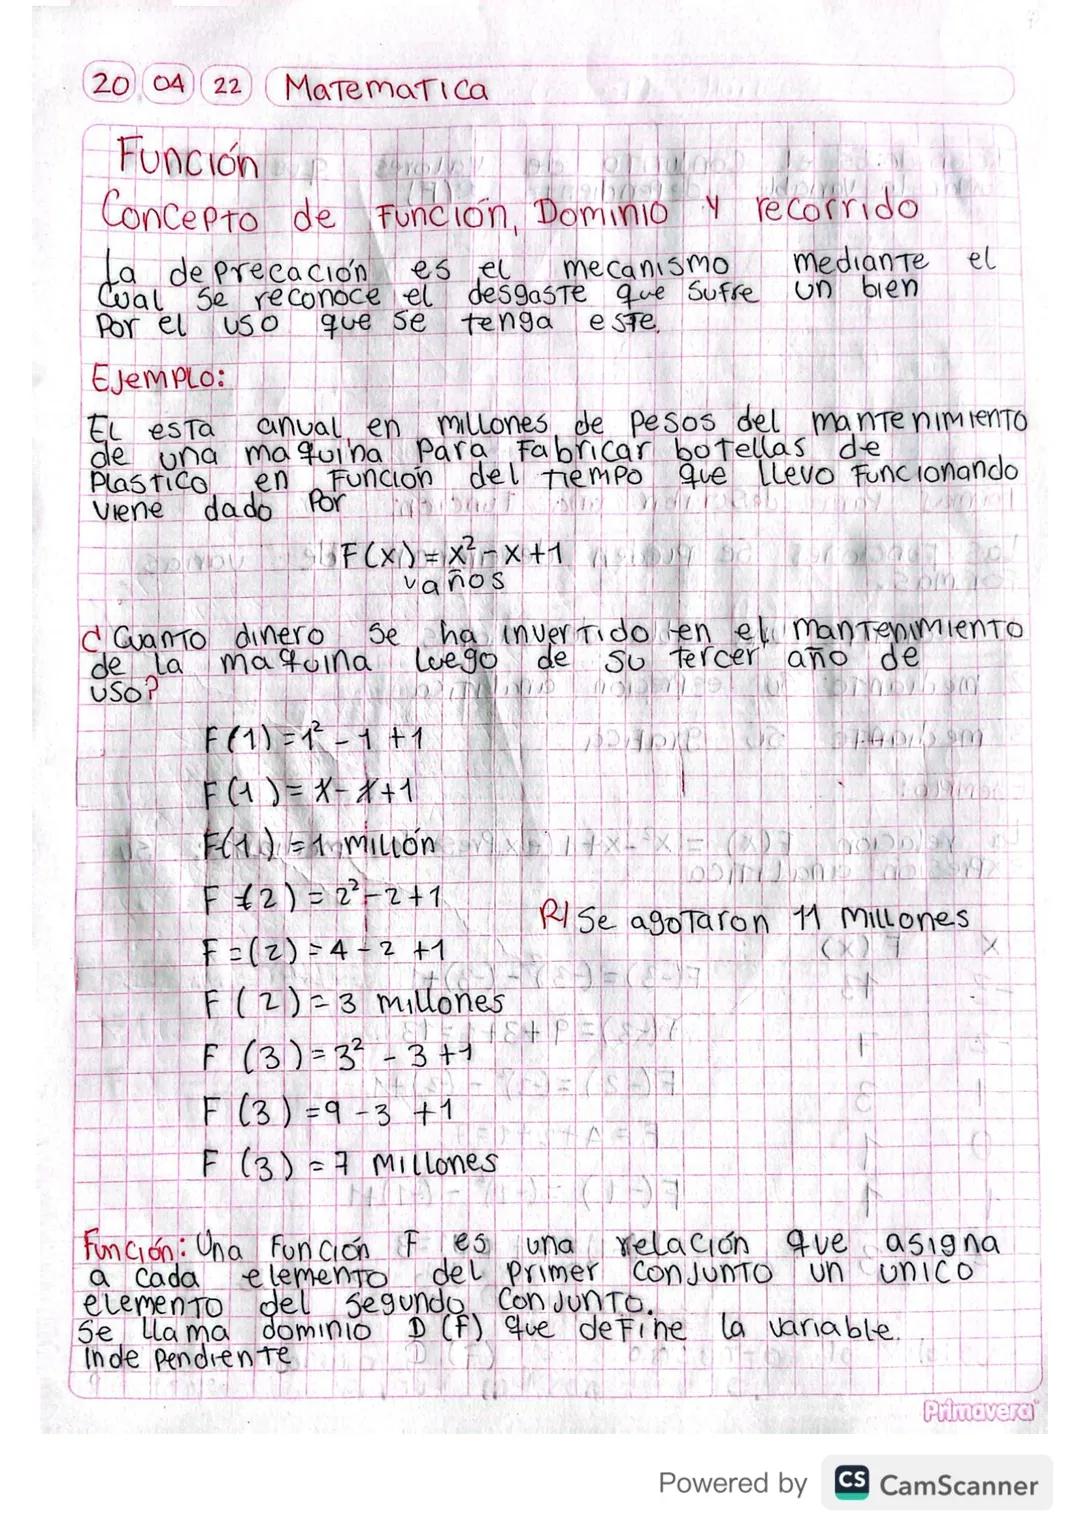 20 04 22 Matematica
Función
Concepto de Función, Dominio y recorrido
La deprecación es el mecanismo mediante el
Cual se reconoce el desgaste que sufre un bien
Por el uso que se tenga este.
Ejemplo:
El esta anual en millones de pesos del mantenimiento
de una maquina Para Fabricar botellas de
Plastico en Función del tiempo que llevo Funcionando
viene dado Por
F(x) = x² - x + 1
años
¿Cuanto dinero se ha invertido en el mantenimiento
de la maquina luego de su tercer año de
uso?
F(1) = 1² - 1 + 1
F(1) = 1 - 1 + 1
F(1) = 1 millón
F (2) = 2² - 2 + 1
R/ Se agotaron 11 Millones
F = (2) = 4 - 2 + 1
F (2) = 3 millones
F (3) = 3² - 3 + 1
F (3) = 9 - 3 + 1
F (3) = 7 Millones
Función: Una Función F es una relación que asigna
a cada elemento del Primer Conjunto un unico
elemento del segundo Conjunto.
Se llama dominio D (F) que define la variable.
Independiente
Primavera
Powered by CS CamScanner